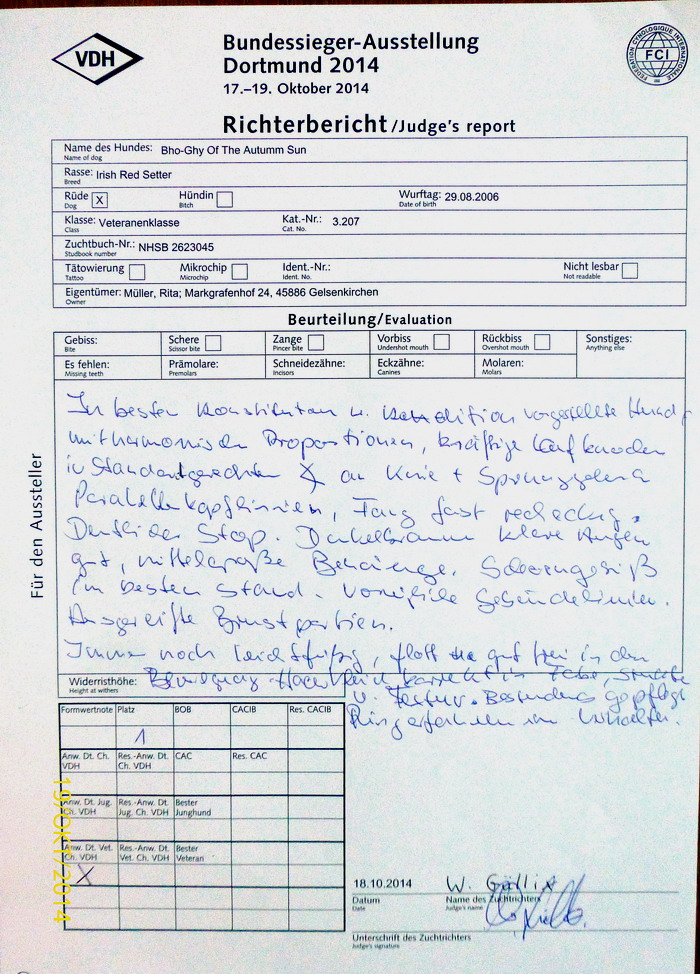 VDH
Bundessieger-Ausstellung
Dortmund 2014
17.–19. Oktober 2014
FEDERATION CYNOLOGIQUE INTERNATIONALE
FCI
Richterbericht/Judge's report
Name des Hundes: Bho-Ghy Of The Autumm Sun
Name of dog
Rasse: Irish Red Setter
Breed
Rüde X Hündin Wurftag: 29.08.2006
Dog Bitch Date of birth
Klasse: Veteranenklasse Kat.-Nr.: 3.207
Class Cat. No.
Zuchtbuch-Nr.: NHSB 2623045
Studbook number
Tätowierung Mikrochip Ident.-Nr.: Nicht lesbar
Tattoo Microchip Ident. No. Not readable
Eigentümer: Müller, Rita; Markgrafenhof 24, 45886 Gelsenkirchen
Owner
Beurteilung/Evaluation
Gebiss: Schere Zange Vorbiss Rückbiss Sonstiges:
Bite Scissor bite Pincer bite Undershot mouth Overshot mouth Anything else
Es fehlen: Prämolare: Schneidezähne: Eckzähne: Molaren:
Missing teeth Premolars Incisors Canines Molars
Für den Aussteller
In besten Konstitution u. Kondition vorgestellte
mit harmonischen Proportionen, kräftige Laufknochen
in Standardgerechten an Knie + Sprunggelenk
Parallele Kopflinien, Fang fast rechteckig.
Deutlicher Stop. Dunkelbraune klare Augen
gut, mittelgroße Behänge. Scherengebiß
im besten Stand. Vorzügliche Gebäudelinien.
Ausgereifte Brustpartien.
Immer noch leichtfüßig, flott gut frei in den
Widerristhöhe: Bewegung Haarkleid korrekt in Farbe, Struktur
Height at withers
u. Textur. Besonders gepflegt
Ringerfahren im Verhalten.
Formwertnote Platz BOB CACIB Res. CACIB
1
Anw. Dt. Ch. VDH Res.-Anw. Dt. Ch. VDH CAC Res. CAC
Anw. Dt. Jug. Ch. VDH Res.-Anw. Dt. Jug. Ch. VDH Bester Junghund
Anw. Dt. Vet. Ch. VDH Res.-Anw. Dt. Vet. Ch. VDH Bester Veteran
X
19/OKT/2014
18.10.2014 W.
Datum Name des Zuchtrichters
Date Judge's name
Unterschrift des Zuchtrichters
Judge's signature